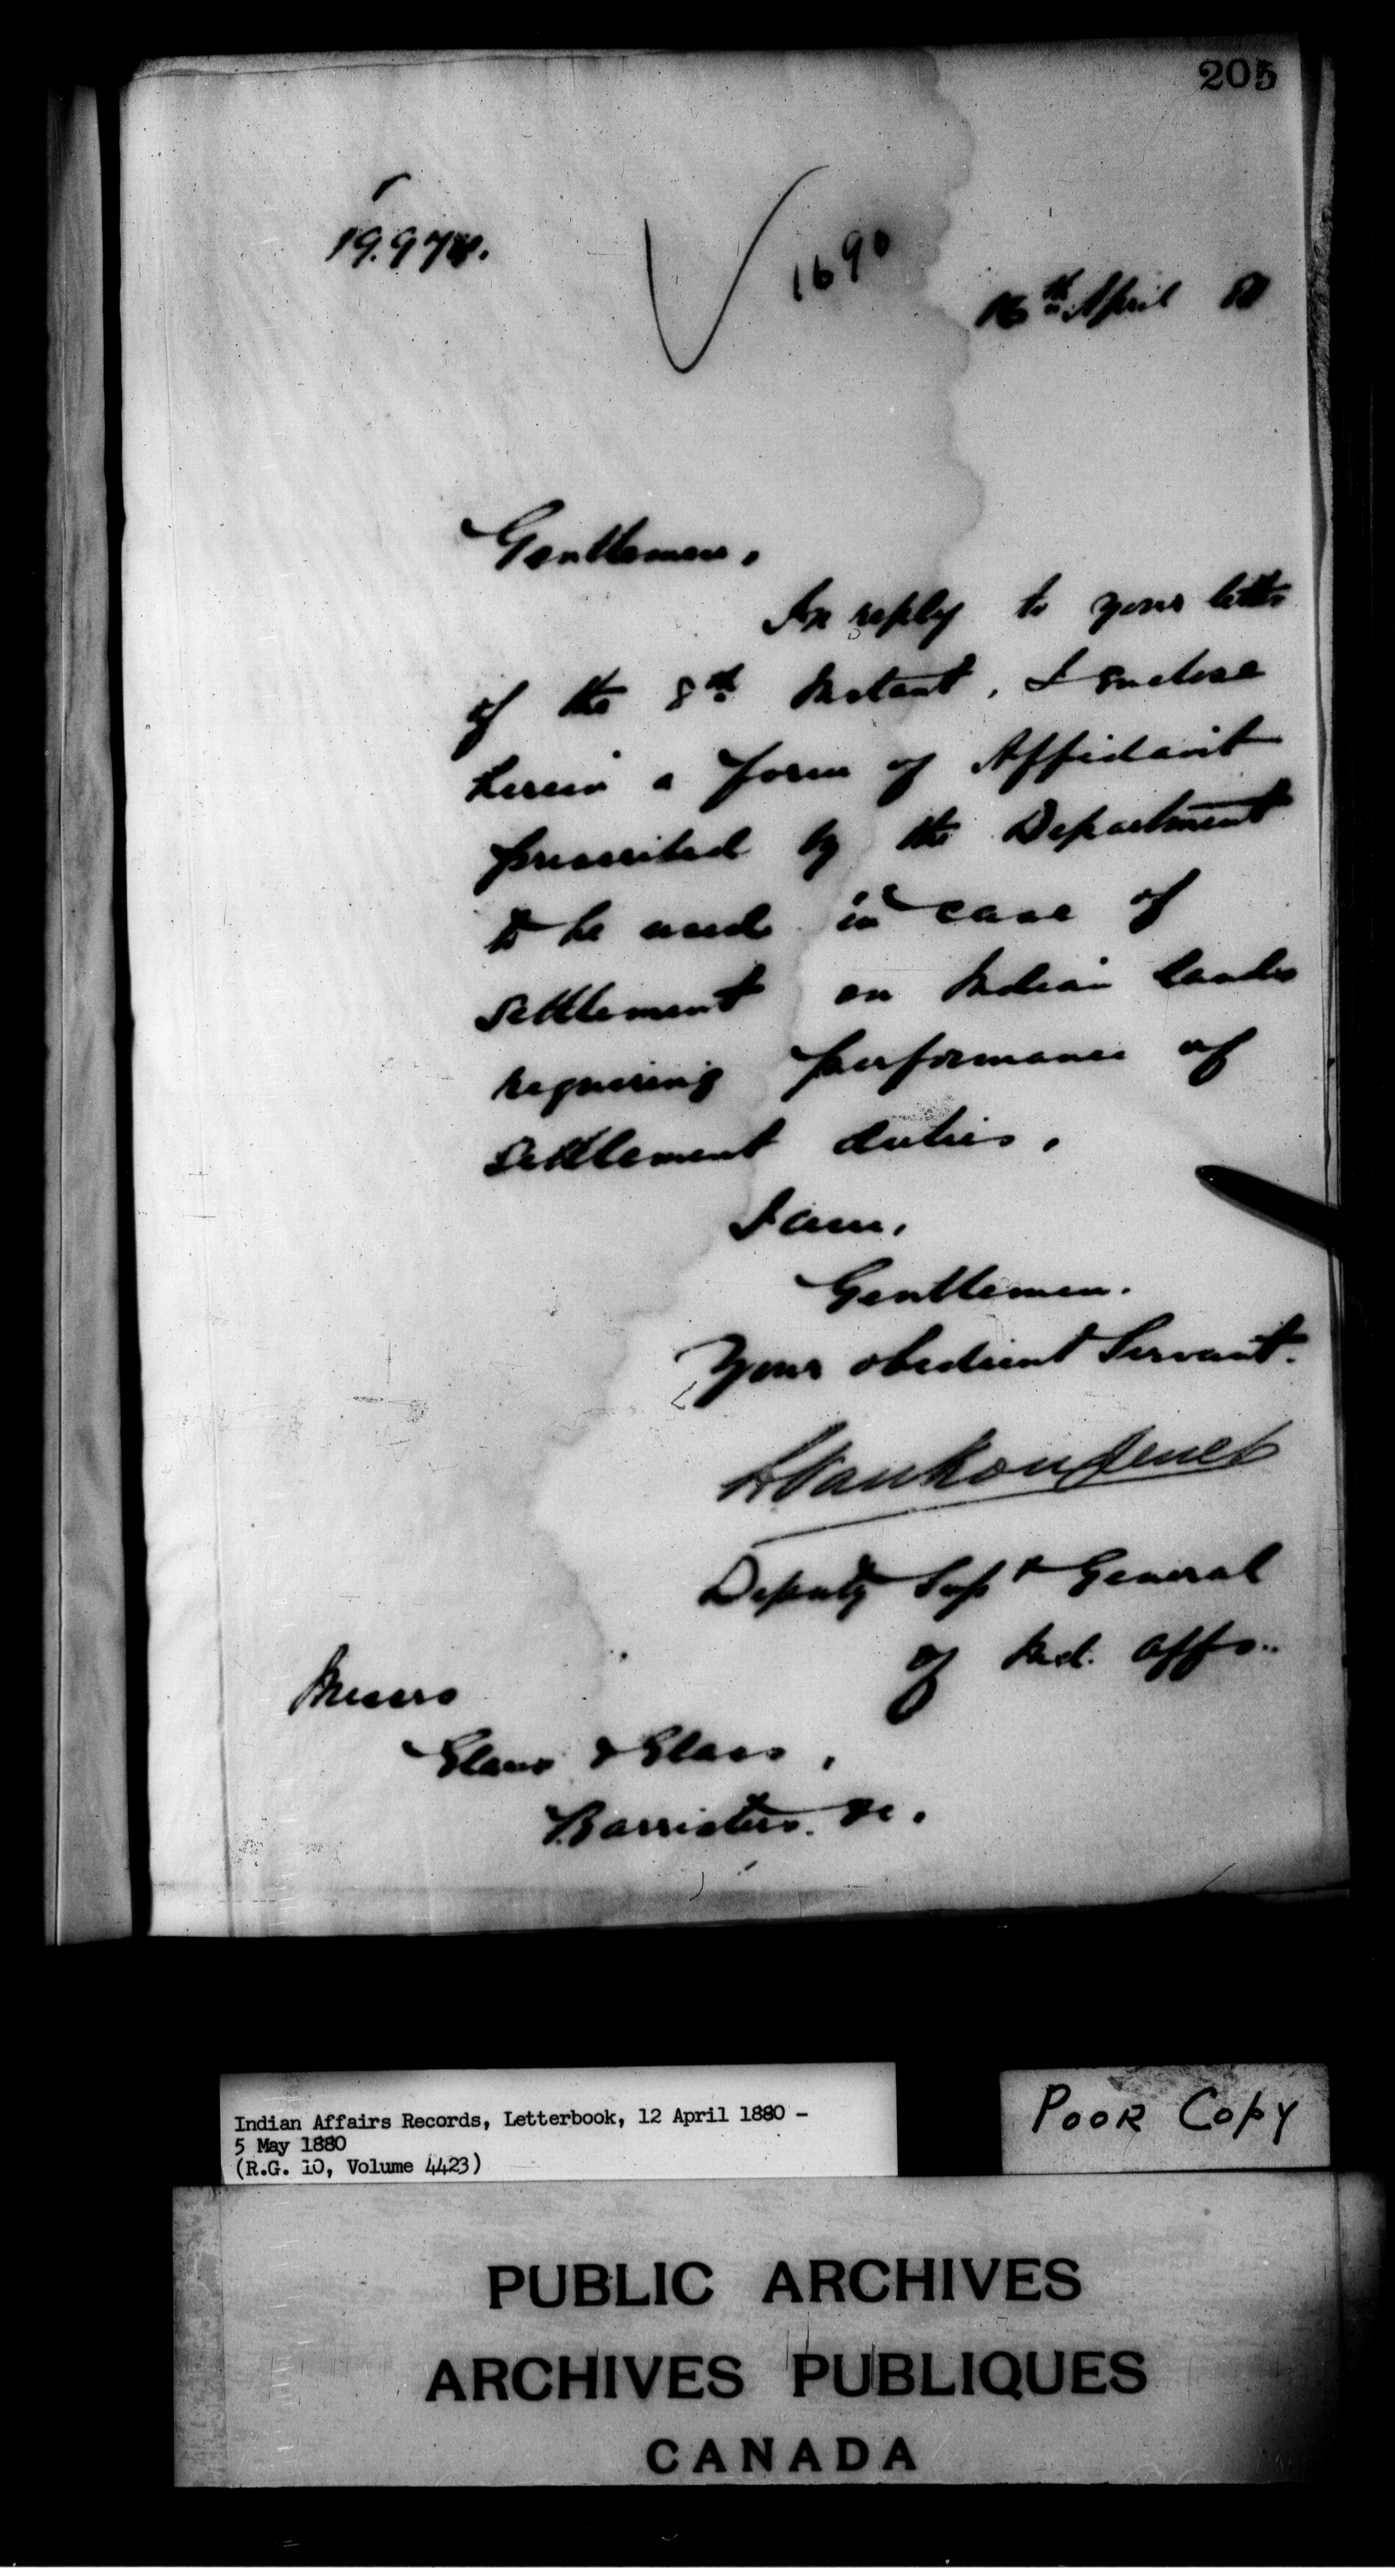 205
19.974.
1690
16th April 80
Gentlemen,
In reply to your letter
of the 8th Instant, I enclose
herein a form of Affidavit
prescribed by the Department
to be used in case of
settlement on Indian lands
requiring performance of
settlement duties.
I am,
Gentlemen.
Your obedient Servant.
L Vankoughnet
Deputy Supt General
of Ind. Affs..
Messrs
Glass & Glass,
Barristers. &c.
Indian Affairs Records, Letterbook, 12 April 1880 -
5 May 1880
(R.G. 10, Volume 4423)
POOR COPY
PUBLIC ARCHIVES
ARCHIVES PUBLIQUES
CANADA